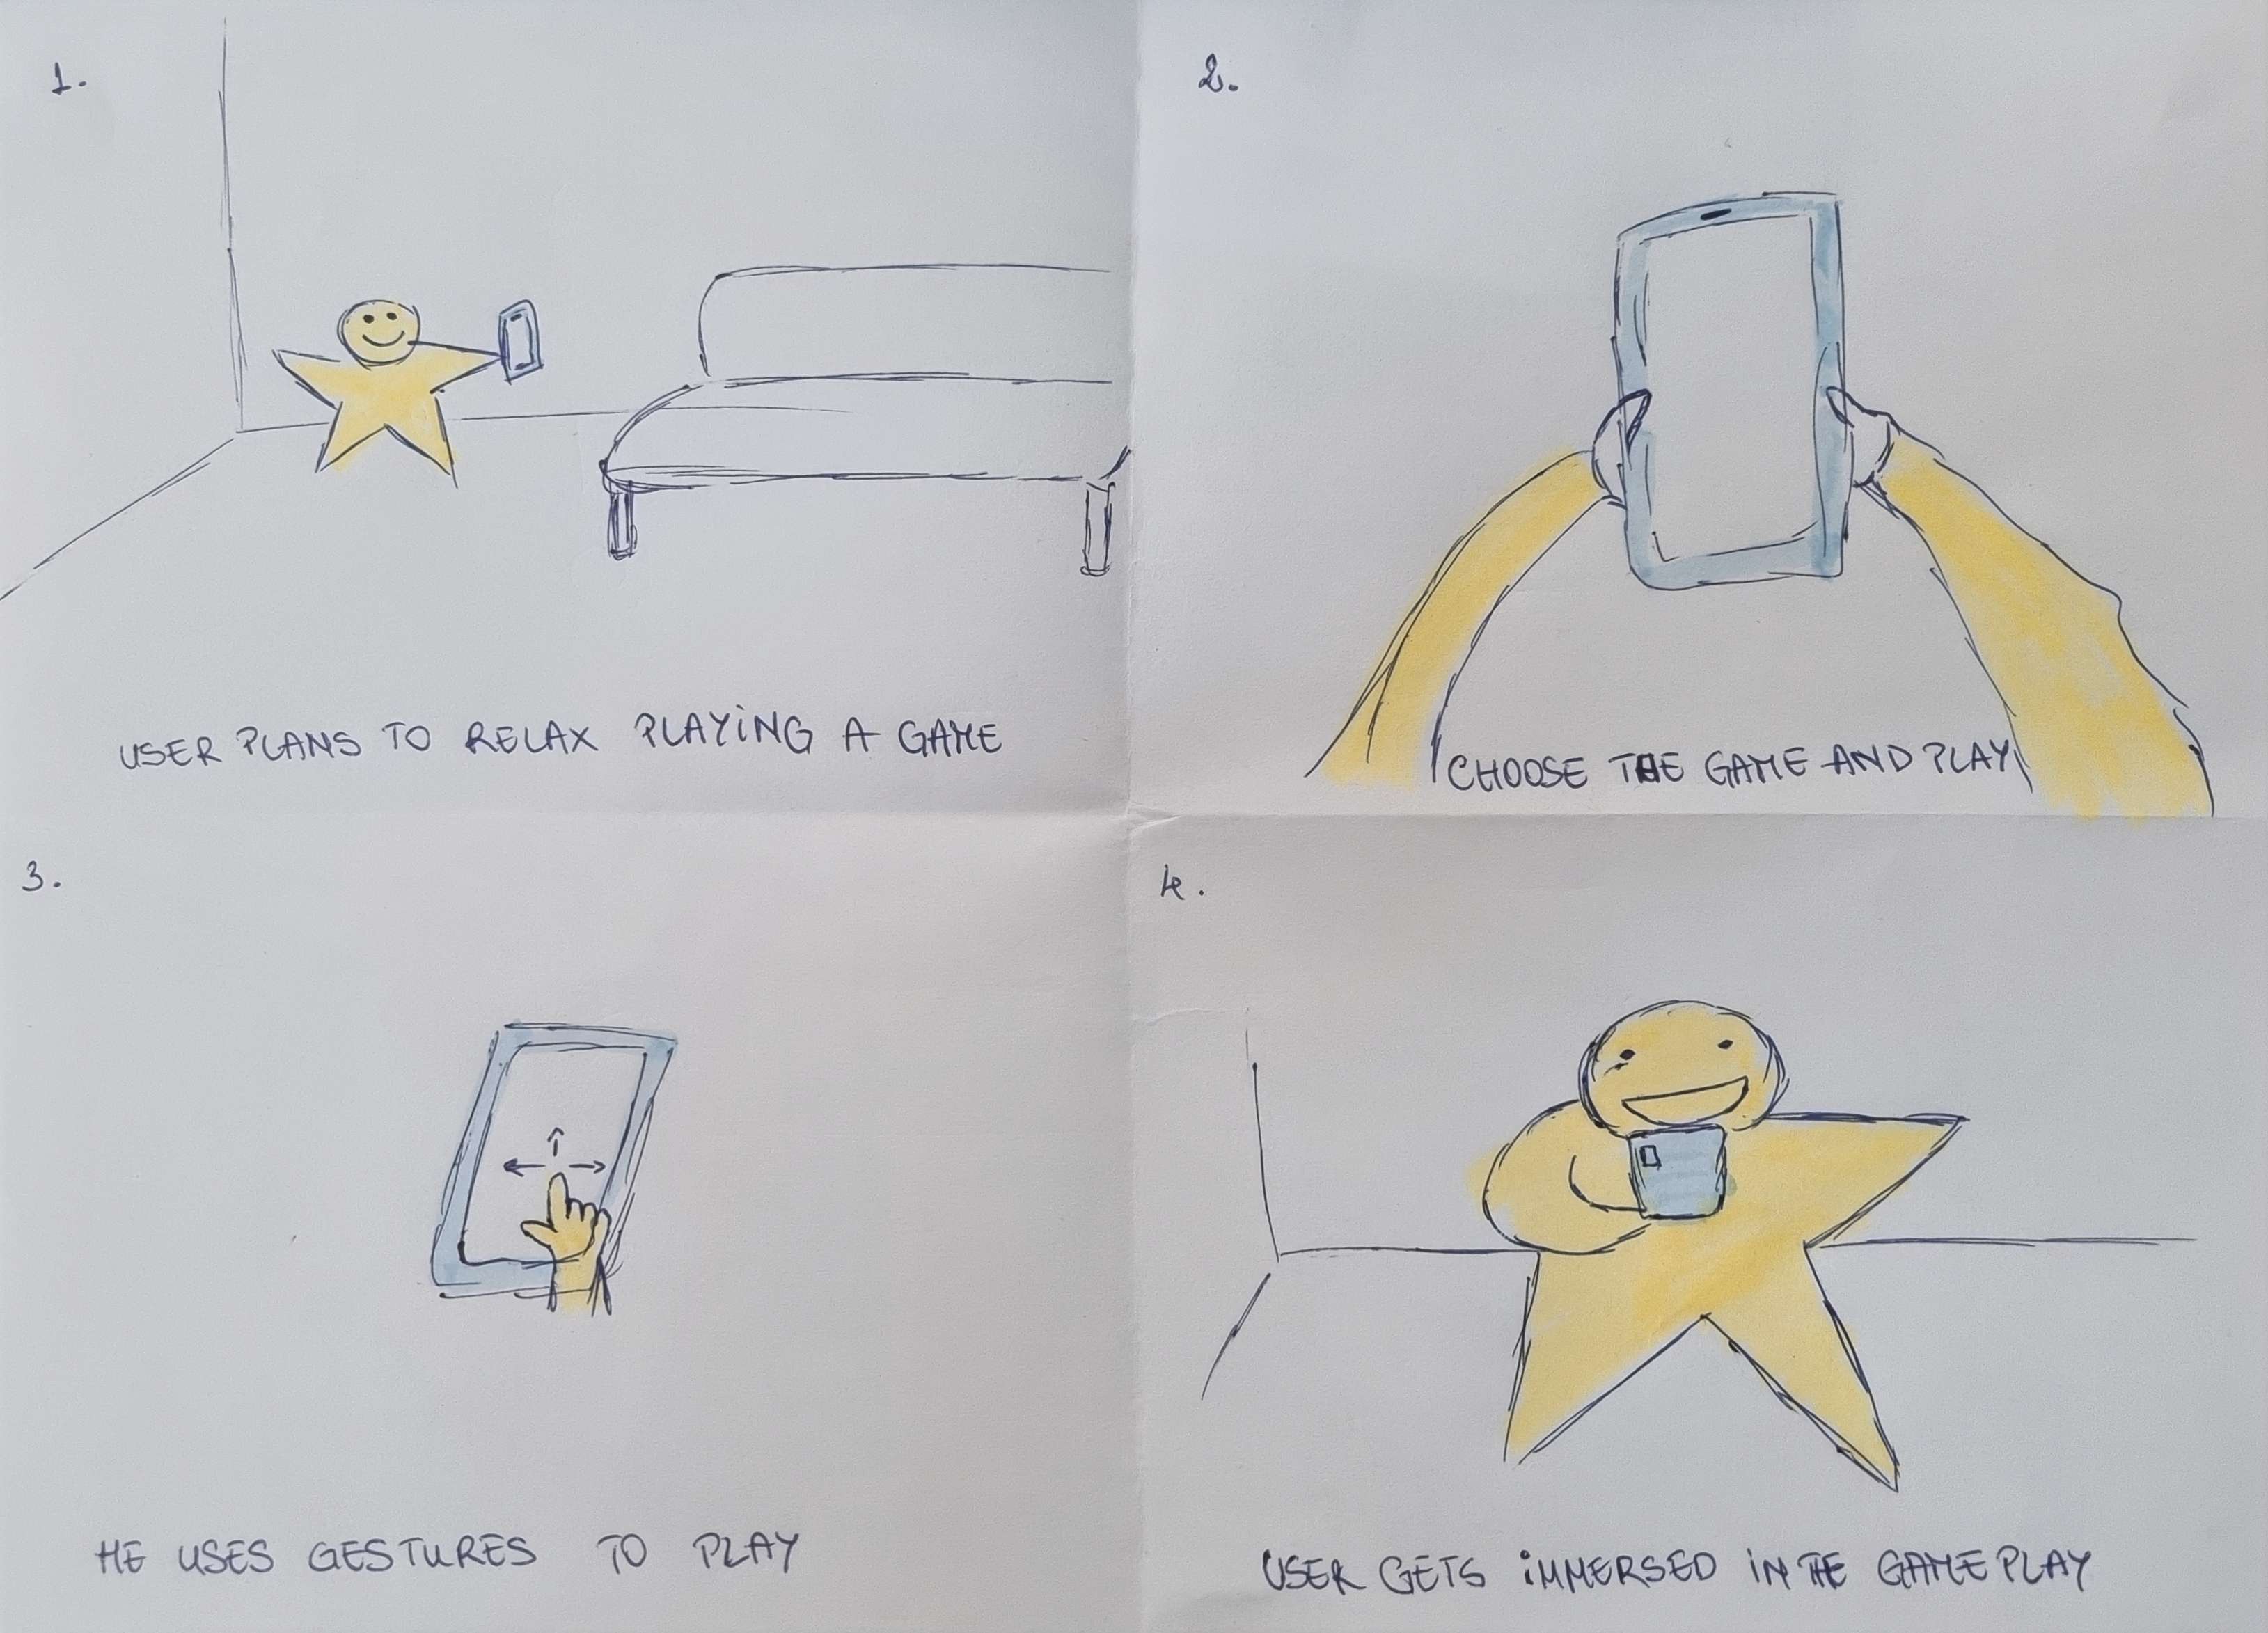 1.
USER PLANS TO RELAX PLAYING A GAME
2.
CHOOSE THE GAME AND PLAY
3.
HE USES GESTURES TO PLAY
4.
USER GETS IMMERSED IN THE GAMEPLAY